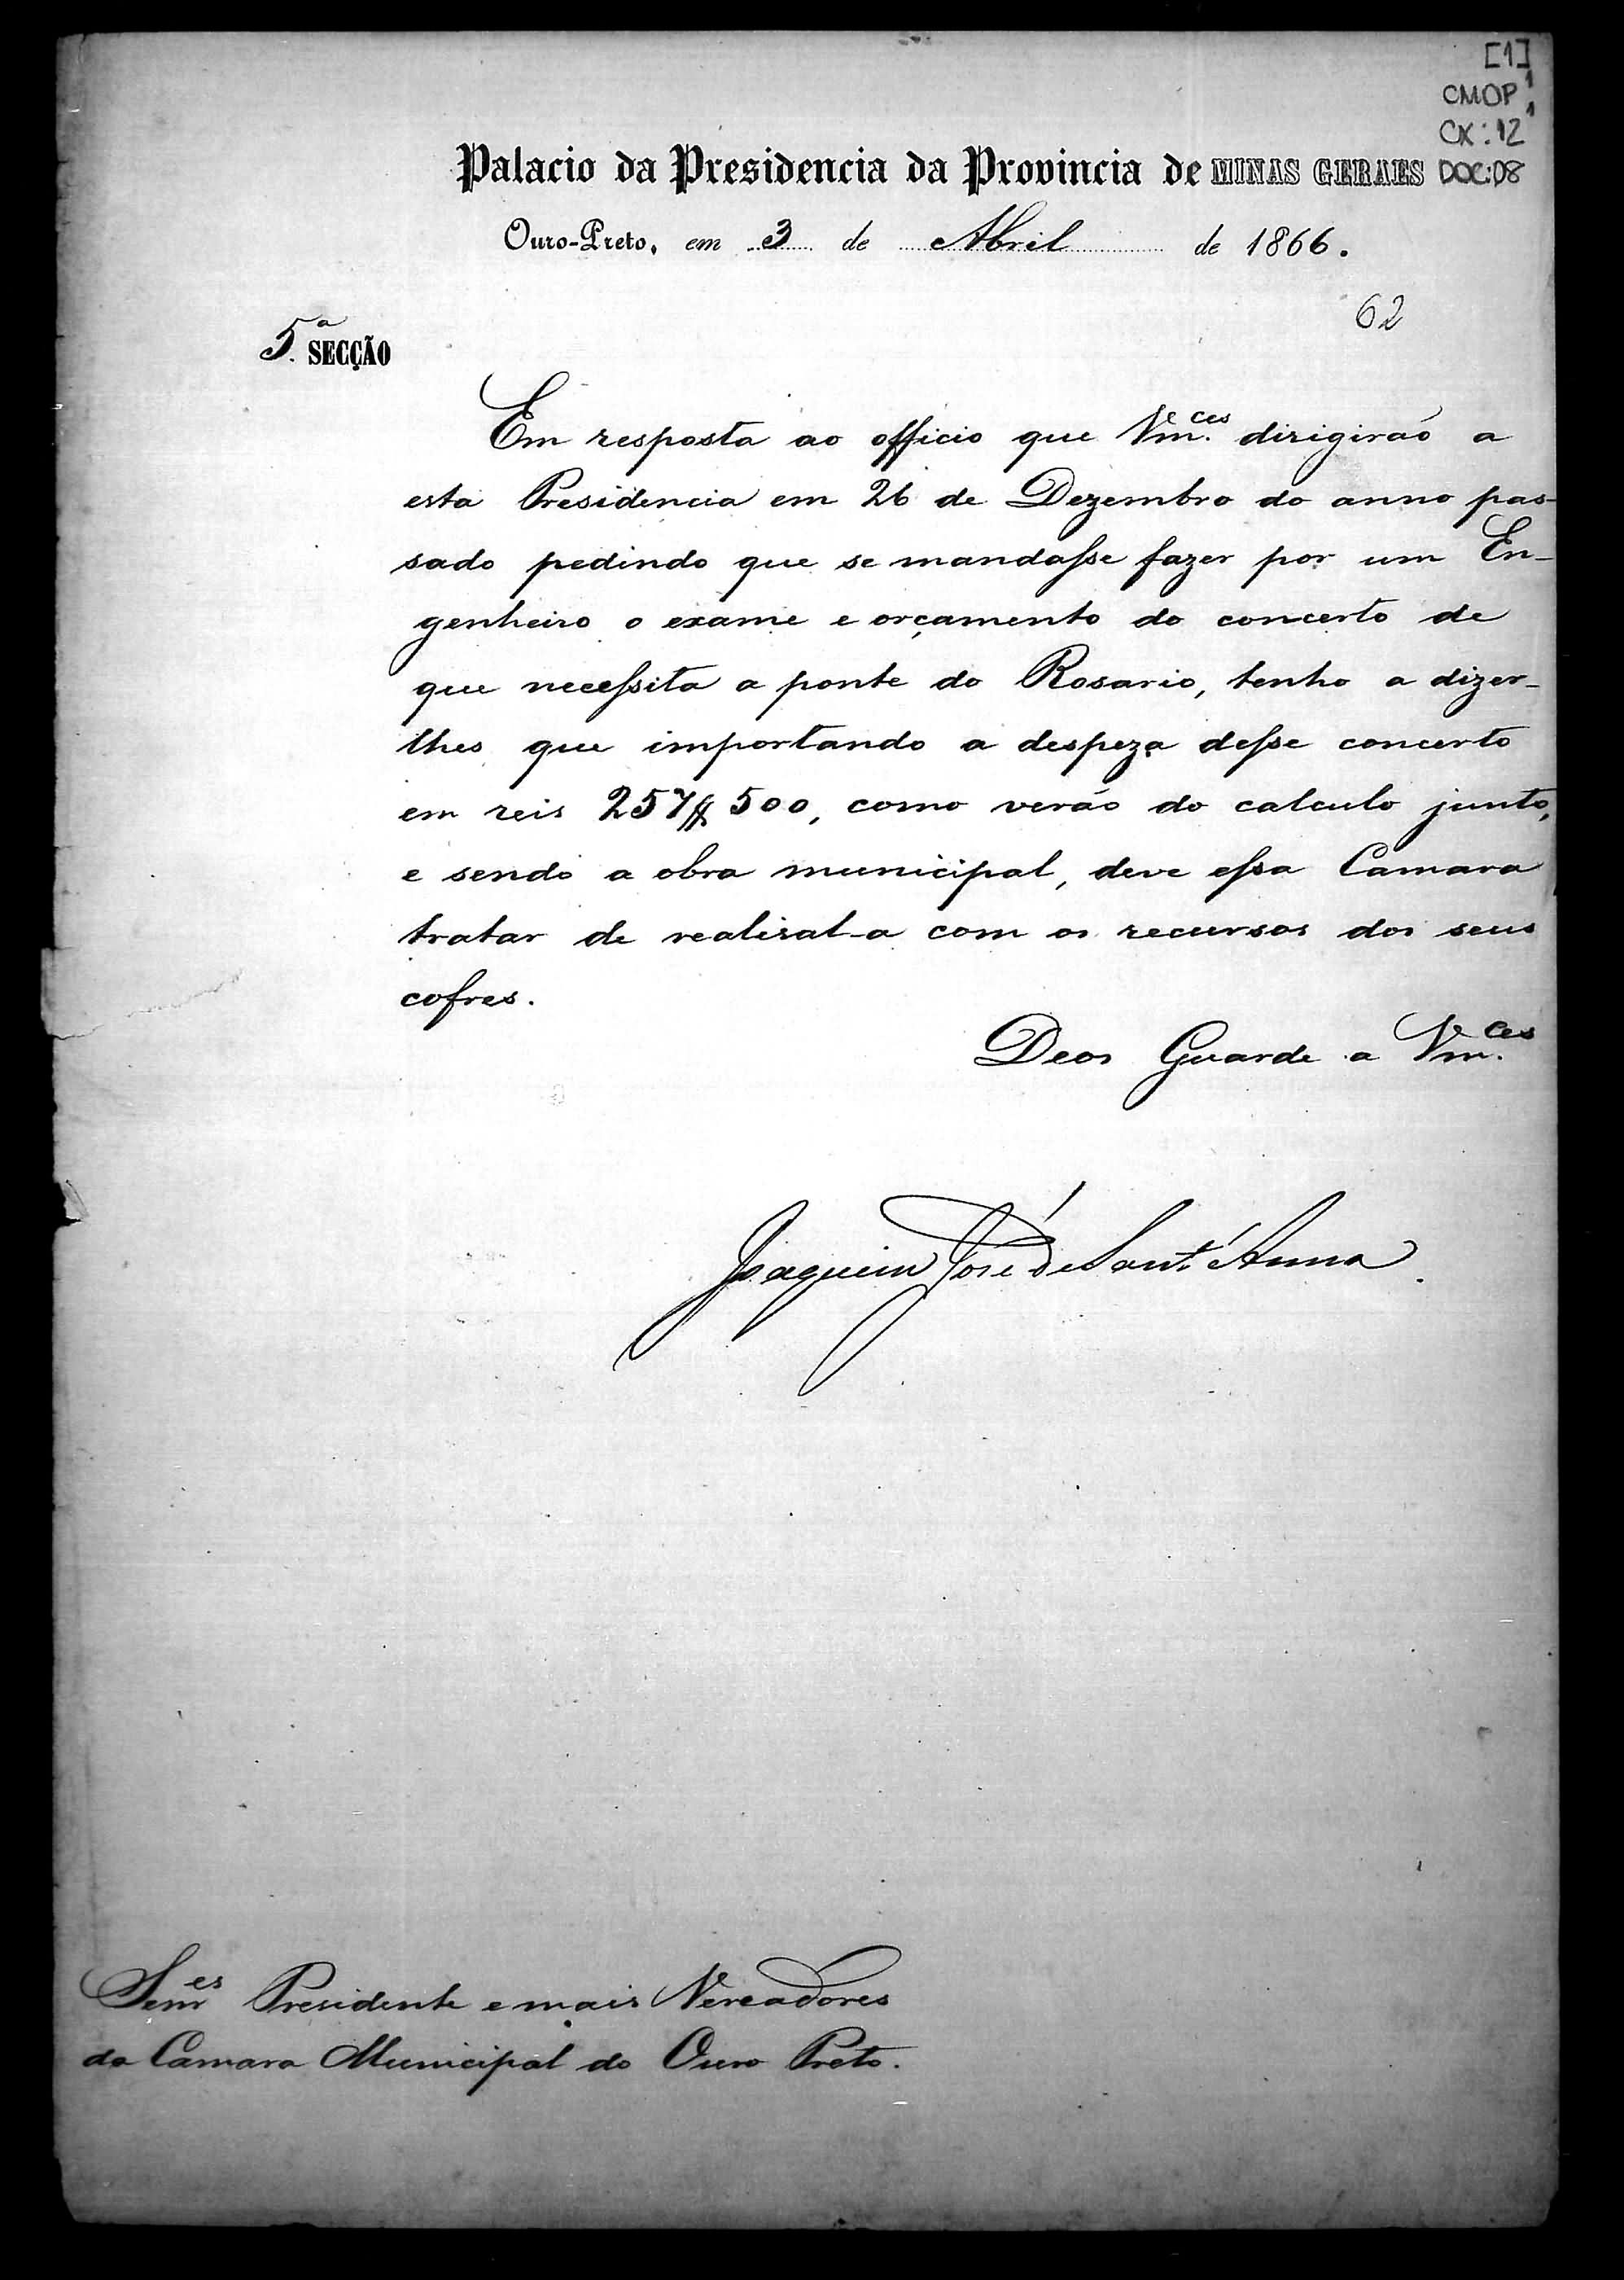 [1]
CMOP
CX: 12
Palacio da Presidencia da Provincia de MINAS GERAES DOC: 08
Ouro-Preto, em 3 de Abril de 1866.
62
5.ª SECÇÃO
Em resposta ao officio que Vm.ces dirigirão a
esta Presidencia em 26 de Dezembro do anno pas-
sado pedindo que se mandasse fazer por um En-
genheiro o exame e orçamento do concerto de
que necessita a ponte do Rosario, tenho a dizer-
lhes que importando a despeza desse concerto
em reis 257$500, como verão do calculo junto,
e sendo a obra municipal, deve essa Camara
tratar de realisal-a com os recursos dos seus
cofres.
Deos Guarde a Vm.ces
Joaquim José de Sant'Anna.
Senres Presidente e mais Vereadores
da Camara Municipal do Ouro Preto.